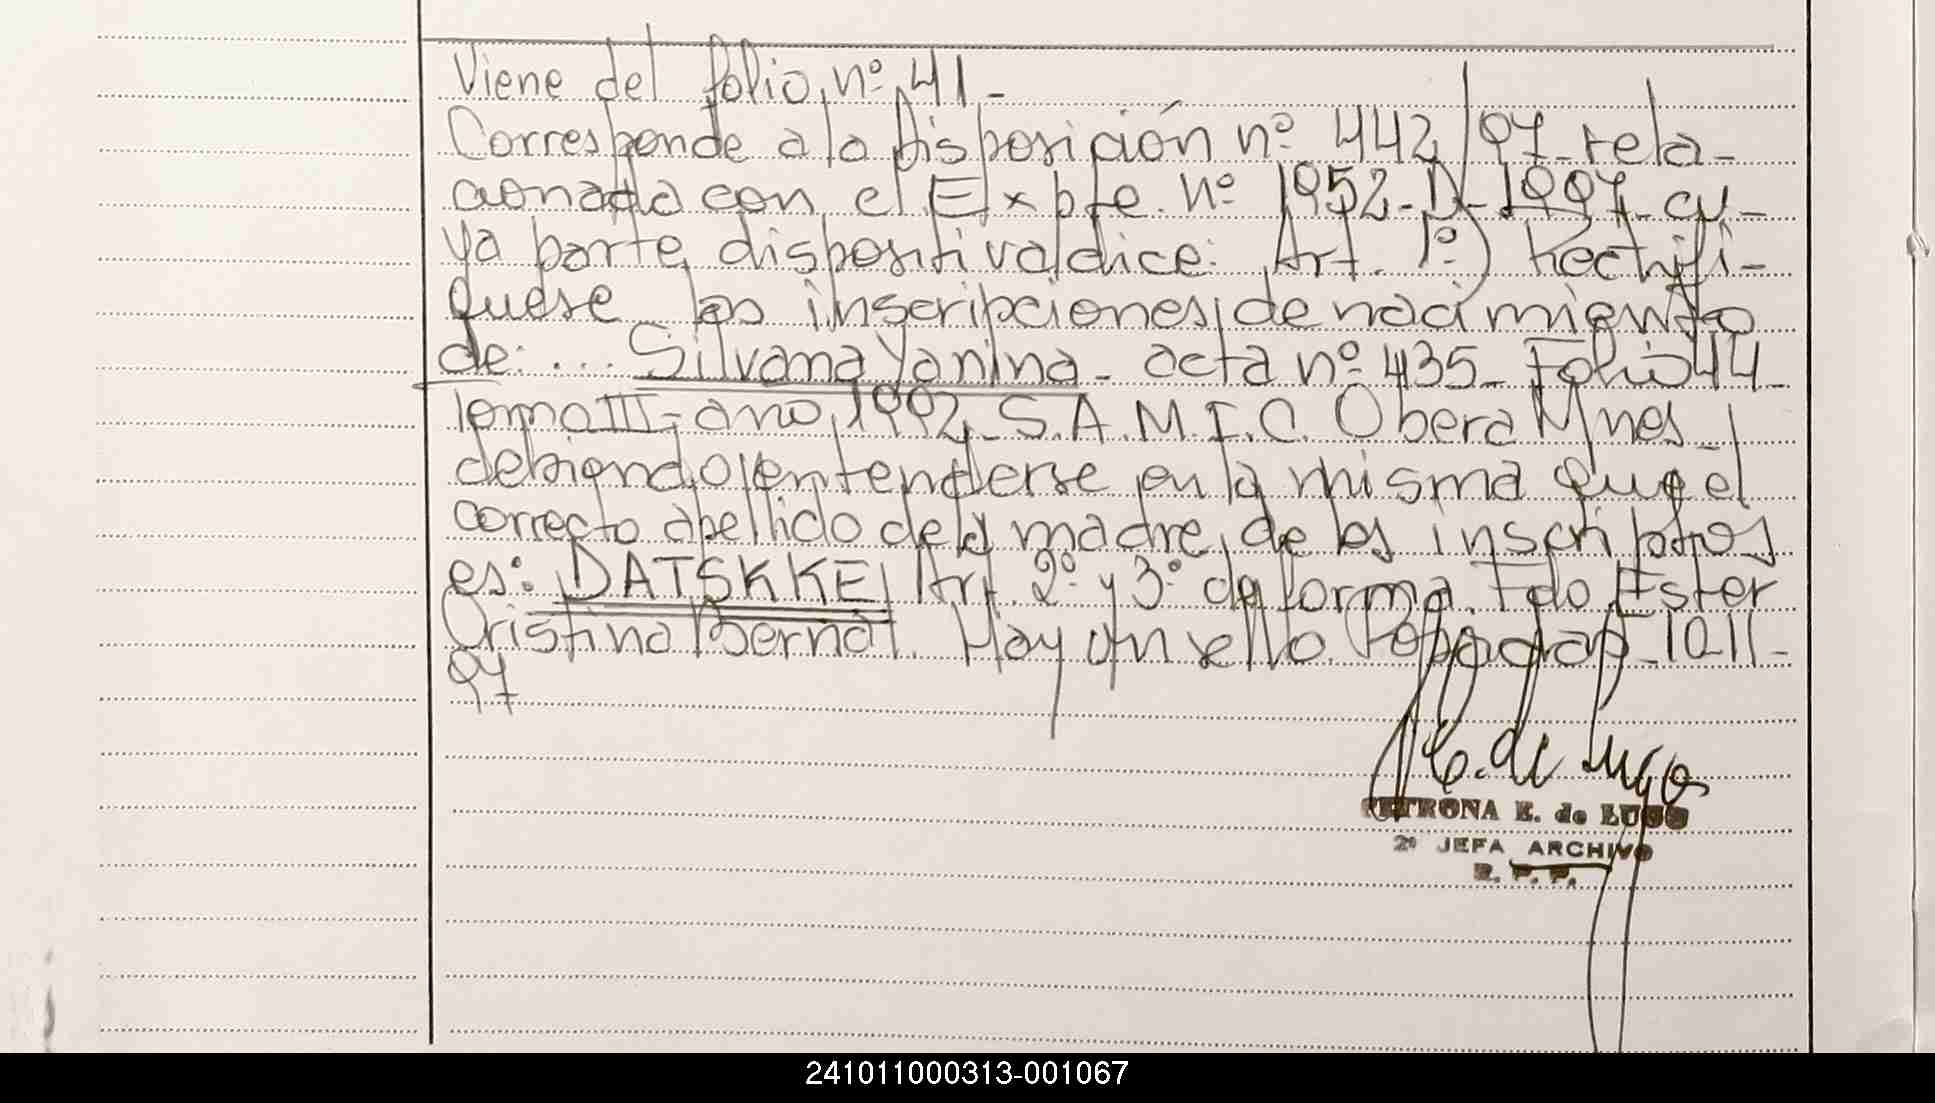 Viene del folio nº 41-
Corresponde a la Disposición nº 442/97- rela-
cionada con el Expte. nº 1952-D-1997- cu-
ya parte dispositiva dice: Art. 1º) Rectifí-
quese las inscripciones de nacimiento
de: ... Silvana Yanina - acta nº 435- Folio 44-
Tomo III- año 1992- S.A.M.I.C. Obera Mnes-
debiendo entenderse en la misma que el
correcto apellido de la madre de los inscriptos
es: DATSKKE Art. 2º y 3º de forma. Fdo Ester
Cristina Bernal. Hay un sello. Posadas 10-11-
97
E. de Lugo
PETRONA E. de LUGO
2º JEFA ARCHIVO
R. P. P.
241011000313-001067